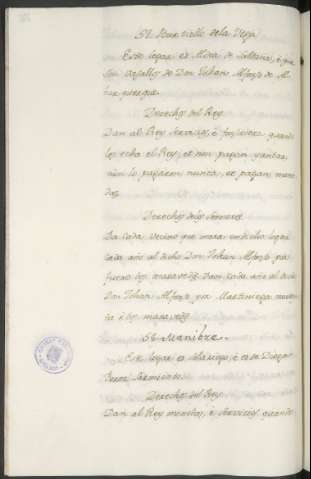 51. Barriello dela Vega
Este logar es Mera de Solbana, è que
son vasallos de Don Johan Alfonso de Al-
burquerque.
Derechos del Rey
Dan al Rey servicios, è forsadera quando
los echa el Rey, et non pagan yantar,
nin lo pagaron nunca, et pagan mone-
das.
Derechos delos Sennores
Da cada vecino que mora en dicho logar
cada año al dicho Don Johan Alfonso por
furcion dos maravedis. Dan cada año al dicho
Don Johan Alfonso por Martiniega
è dos maravedis.
52. Manibre.
Este logar es solariego, è es de Diego
Perez Sarmiento.
Derechos del Rey
Dan al Rey monedas, è servicios quando